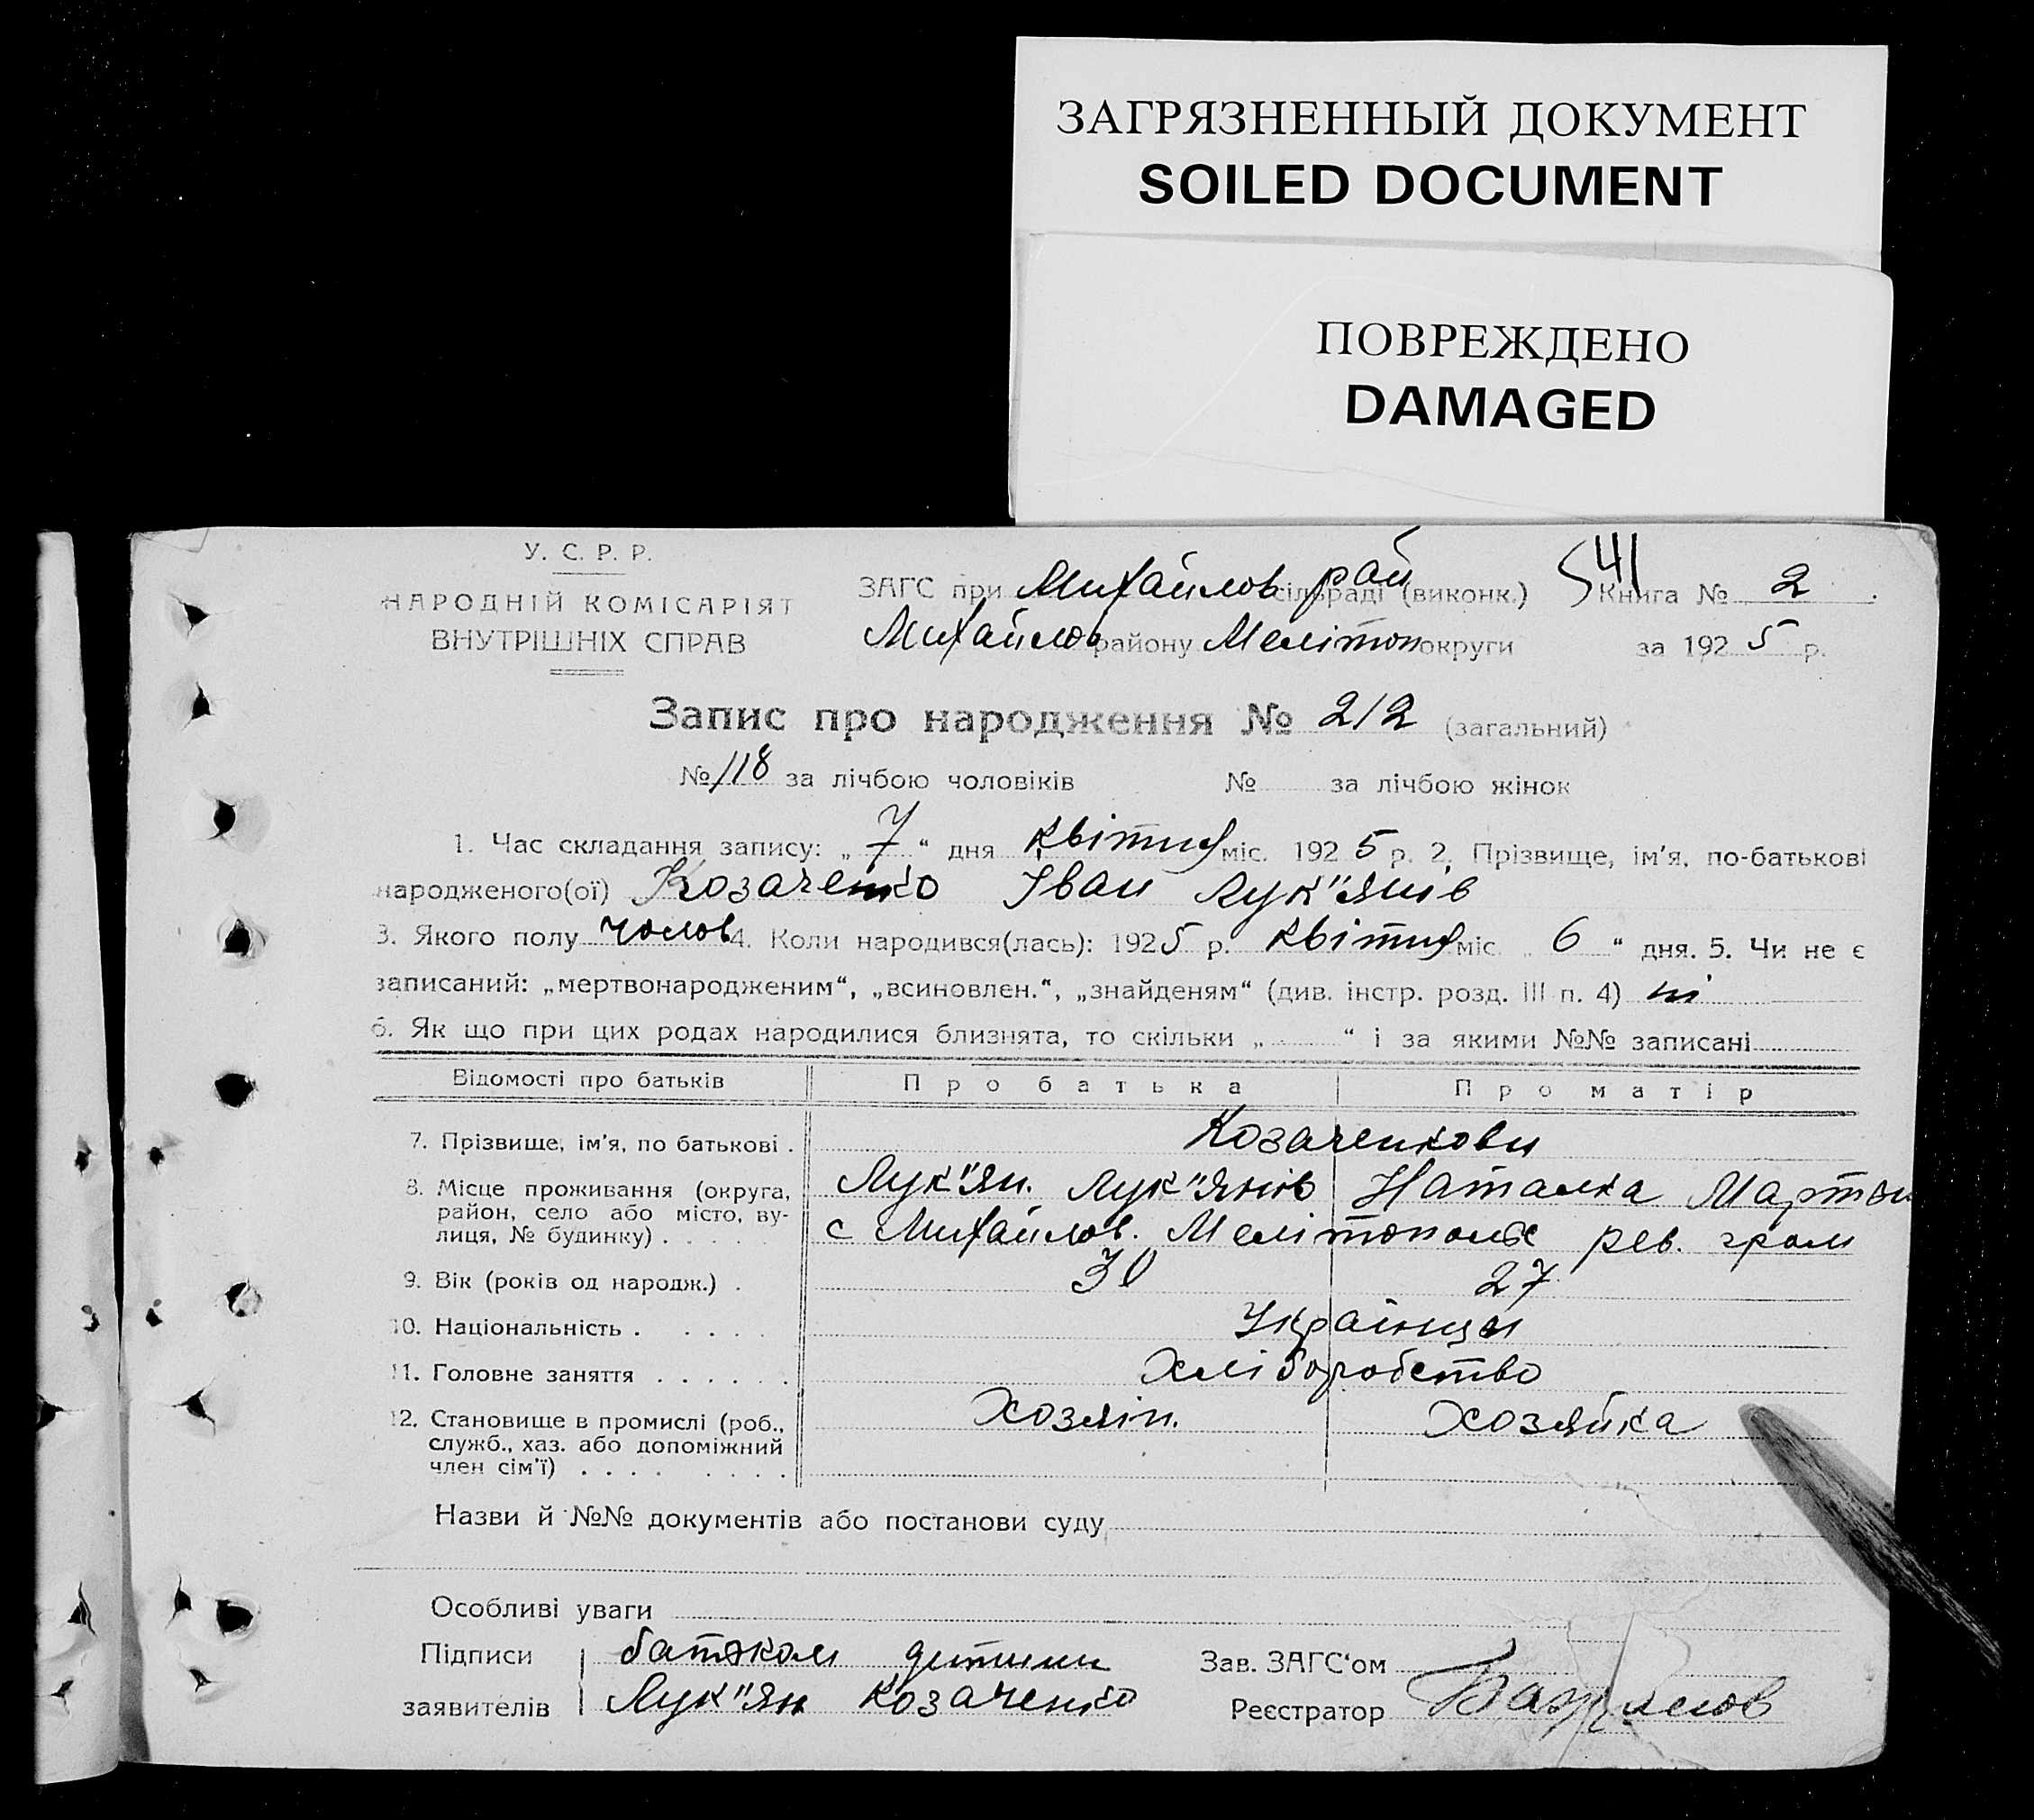 ЗАГРЯЗНЕННЫЙ ДОКУМЕНТ
SOILED DOCUMENT
ПОВРЕЖДЕНО
DAMAGED
У. С. Р. Р.
НАРОДНІЙ КОМІСАРІЯТ
ВНУТРІШНІХ СПРАВ
ЗАГС при Михайлов рай сільраді (виконк.) 541 Книга № 2
Михайлов району Мелітоп округи за 1925 р.
Запис про народження № 212 (загальний)
№ 118 за лічбою чоловіків № за лічбою жінок
1. Час складання запису: „7“ дня квітня міс. 1925 р. 2. Прізвище, ім'я, по-батькові
народженого(ої) Козаченко Іван Лук"янів
3. Якого полу чолов 4. Коли народився(лась): 1925 р. квітня міс. „6“ дня. 5. Чи не є
записаний: „мертвонародженим“, „всиновлен.“, „знайденям“ (див. інстр. розд. III п. 4) ні
6. Як що при цих родах народилися близнята, то скільки „ “ і за якими №№ записані
Відомості про батьків Про батька Про матір
7. Прізвище, ім'я, по батькові . Козаченкови
8. Місце проживання (округа, Лук"ян. Лук"янів Наталка Мартын
район, село або місто, ву-
лиця, № будинку) . . . . . с Михайлов. Мелітополь рев. гром
9. Вік (років од народж.) . 30 27
10. Національність . . . . . Українци
11. Головне заняття . . . . . . Хліборобство
12. Становище в промислі (роб., Хозяін. Хозяйка
служб., хаз. або допоміжний
член сім'ї) . . . . . . . .
Назви й №№ документів або постанови суду
Особливі уваги
Підписи батьком дитини Зав. ЗАГС'ом
заявителів Лук"ян Козаченко Реєстратор